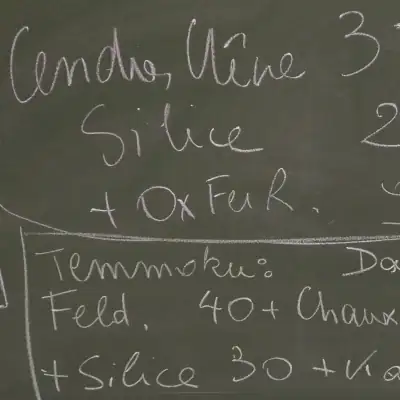 Cendre, Chêne 3
Silice 2
+ Ox Fer R.
Temmoku: Da
Feld. 40 + Chaux
+ Silice 30 + Ka